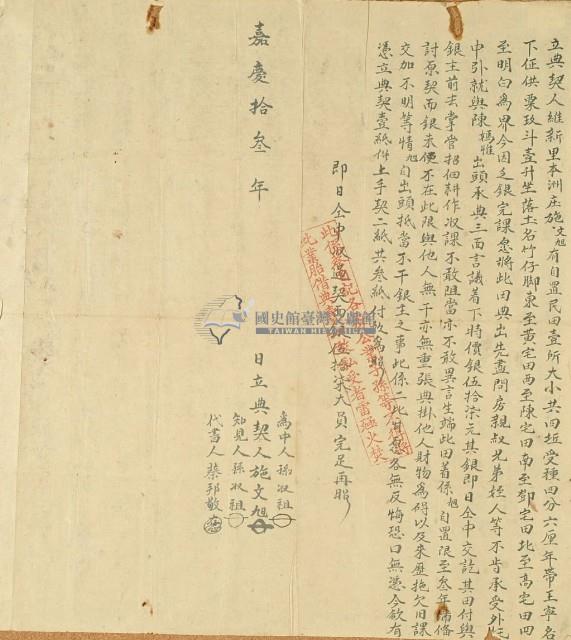 立典契人維新里本洲庄施文旭有自置民田壹所大小共四坵受種四分六厘年帶王寧名
下佃供粟玖斗壹升坐落土名竹仔脚東至黃宅田西至陳宅田南至鄧宅田北至高宅田四
至明白為界今因乏銀完課愿將此田典出先盡問房親叔兄弟姪人等不肯承受外托
中引就與陳媽惟出頭承典三面言議着下時價銀伍拾柒元其銀即日仝中交訖其田付與
銀主前去掌管招佃耕作收課不敢阻當亦不敢異言生端此田着係旭自置限至叁年備
討原契而銀未便不在此限與他人無干亦無重張典掛他人財物為碍以及來歷拖欠旧課
交加不明等情旭自出頭抵當不干銀主之事此係二比甘愿各無反悔恐口無憑今欲有
憑立典契壹紙併上手契二紙共叁紙付收為照
即日仝中收過契面銀伍拾柒大員完足再照
為中人孫淑祖
知見人孫淑祖
嘉慶拾叁年 日立典契人施文旭
代書人蔡邦敬
國史館臺灣文獻館
TAIWAN HISTORICA